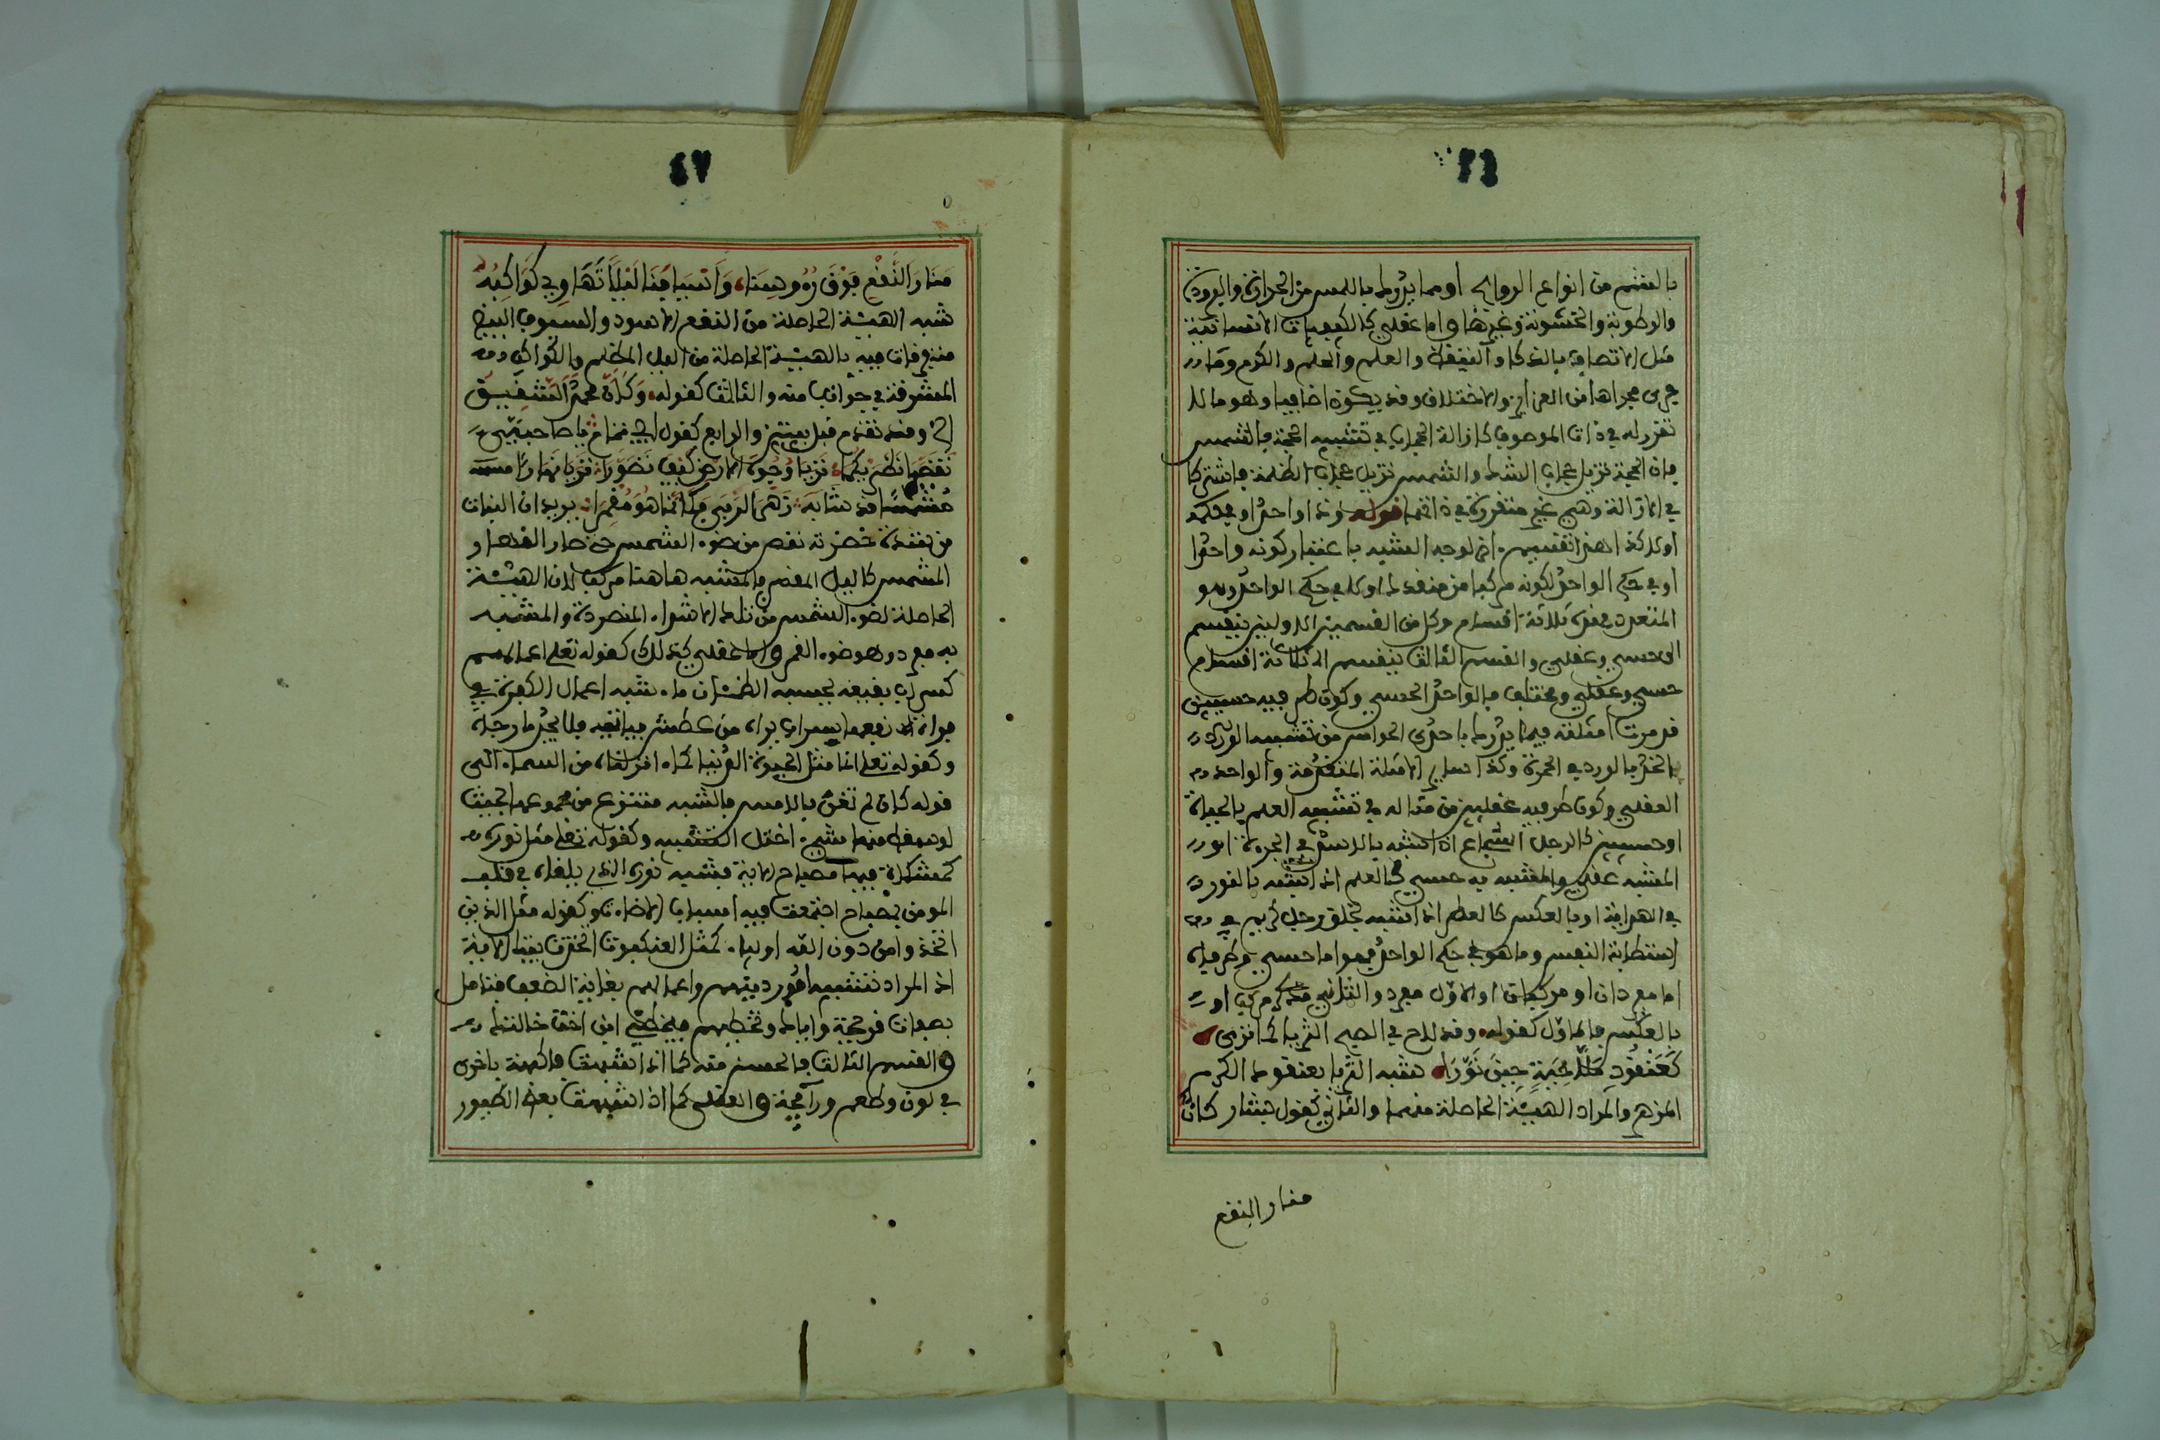 بالشم من انواع الروايح او مما يدرك باللمس من الحرارة والبرودة
والرطوبة والخشونة وغيرها واما عقلي كالكيفيات الانفسانية
مثل الاتصاف بالذكا والتيقظ والعلم والحلم والكرم وما
جرى مجراها من الغرايز والاختلاف وقد يكون اضافيا وهو ما لا
تقرر له في ذات الموصوف كازالة الحجاب في تشبيه الحجة بالشمس
فان الحجة تزيل حجاب الشك والشمس تزيل حجاب الظلمة فاشتركا
في الازالة وهي غير متقررة في ذاتهما قوله وذا واحدا او في حكمه
اولا كذا هذا تقسيم اخر لوجه الشبه باعتبار كونه واحدا
او في حكم الواحد لكونه مركبا من متعدد اولا في حكم الواحد وهو
المتعدد فهي ثلاثة اقسام وكل من القسمين الاولين ينقسم
الى حسي وعقلي والقسم الثالث ينقسم الى ثلاثة اقسام
حسي وعقلي ومختلف فالواحد الحسي وكون طرفيه حسيين
قد مرت امثلته فيما يدرك باحدى الحواس من تشبيه
الخد بالورد في الحمرة وكذا ساير الامثلة المتقدمة والواحد
العقلي وكون طرفيه عقليين من مثاله في تشبيه العلم بالحياة
او حسيين كالرجل الشجاع اذا شبه بالاسد في الجرءة او
المشبه عقلي والمشبه به حسي كالعلم اذا شبه بالنور
في الهداية او بالعكس كالعطر اذا شبه بخلق رجل كريم في
استطابة النفس وما هو في حكم الواحد فهو اما حسي وطرفاه
اما مفردان او مركبان او الاول مفرد والثاني مركب او
بالعكس فالاول كقوله وقد لاح في الصبح الثريا كما ترى
كعنقود ملاحية حين نورا شبه الثريا بعنقود الكرم
المزهر والمراد الهيئة الحاصلة منهما والثاني كقول بشار كان
مثار النقع
مثار النقع فوق رءوسنا واسيافنا ليل تهاوى كواكبه
شبه الهيئة الحاصلة من النقع الاسود والسيوف البيض
متفرقات فيه بالهيئة الحاصلة من الليل المظلم والكواكب
المشرقة في جوانب منه والثالث كقوله وكان محمر الشقيق
الخ وقد تقدم قبل بيتين والرابع كقول ابي تمام يا صاحبي
تقصيا نظريكما تريا وجوه الارض كيف تصور تريا نهارا
مشمسا قد شابه زهر الربى فكانما هو مقمر يريد ان النبات
من شدة خضرته نقص من ضوء الشمس حتى صار النهار
المشمس كالليل المقمر فالمشبه هاهنا مركب لان الهيئة
الحاصلة لضوء الشمس من تلك الاشياء المنصرمة والمشبه
به مفرد وهو ضوء القمر واما عقلي كذلك كقوله تعلى اعمالهم
كسراب بقيعة يحسبه الظمئان ماء شبه اعمال الكفرة في
فوات نفعها بسراب يراه من عطش فياتيه فلا يجد ما رجاه
وكقوله تعلى انما مثل الحيوة الدنيا كماء انزلناه من السماء الى
قوله كان لم تغن بالامس فالشبه منتزع من مجموعها بحيث
لو سقط منها شيئ اختل التشبيه وكقوله تعلى مثل نوره
كمشكاة فيها مصباح الاية فشبه نوره الذي يلقاه في قلب
المومن بمصباح اجتمعت فيه اسباب الاضاءة وكقوله مثل الذين
اتخذوا من دون الله اولياء كمثل العنكبوت اتخذت بيتا الاية
اذ المراد تشبيه امور دينهم واعمالهم بغاية الضعف
والقسم الثالث فالحسي منه كما اذا شبهت فاكهة باخرى
في لون وطعم ورايحة والعقلي كما اذا شبهت بعض الطيور